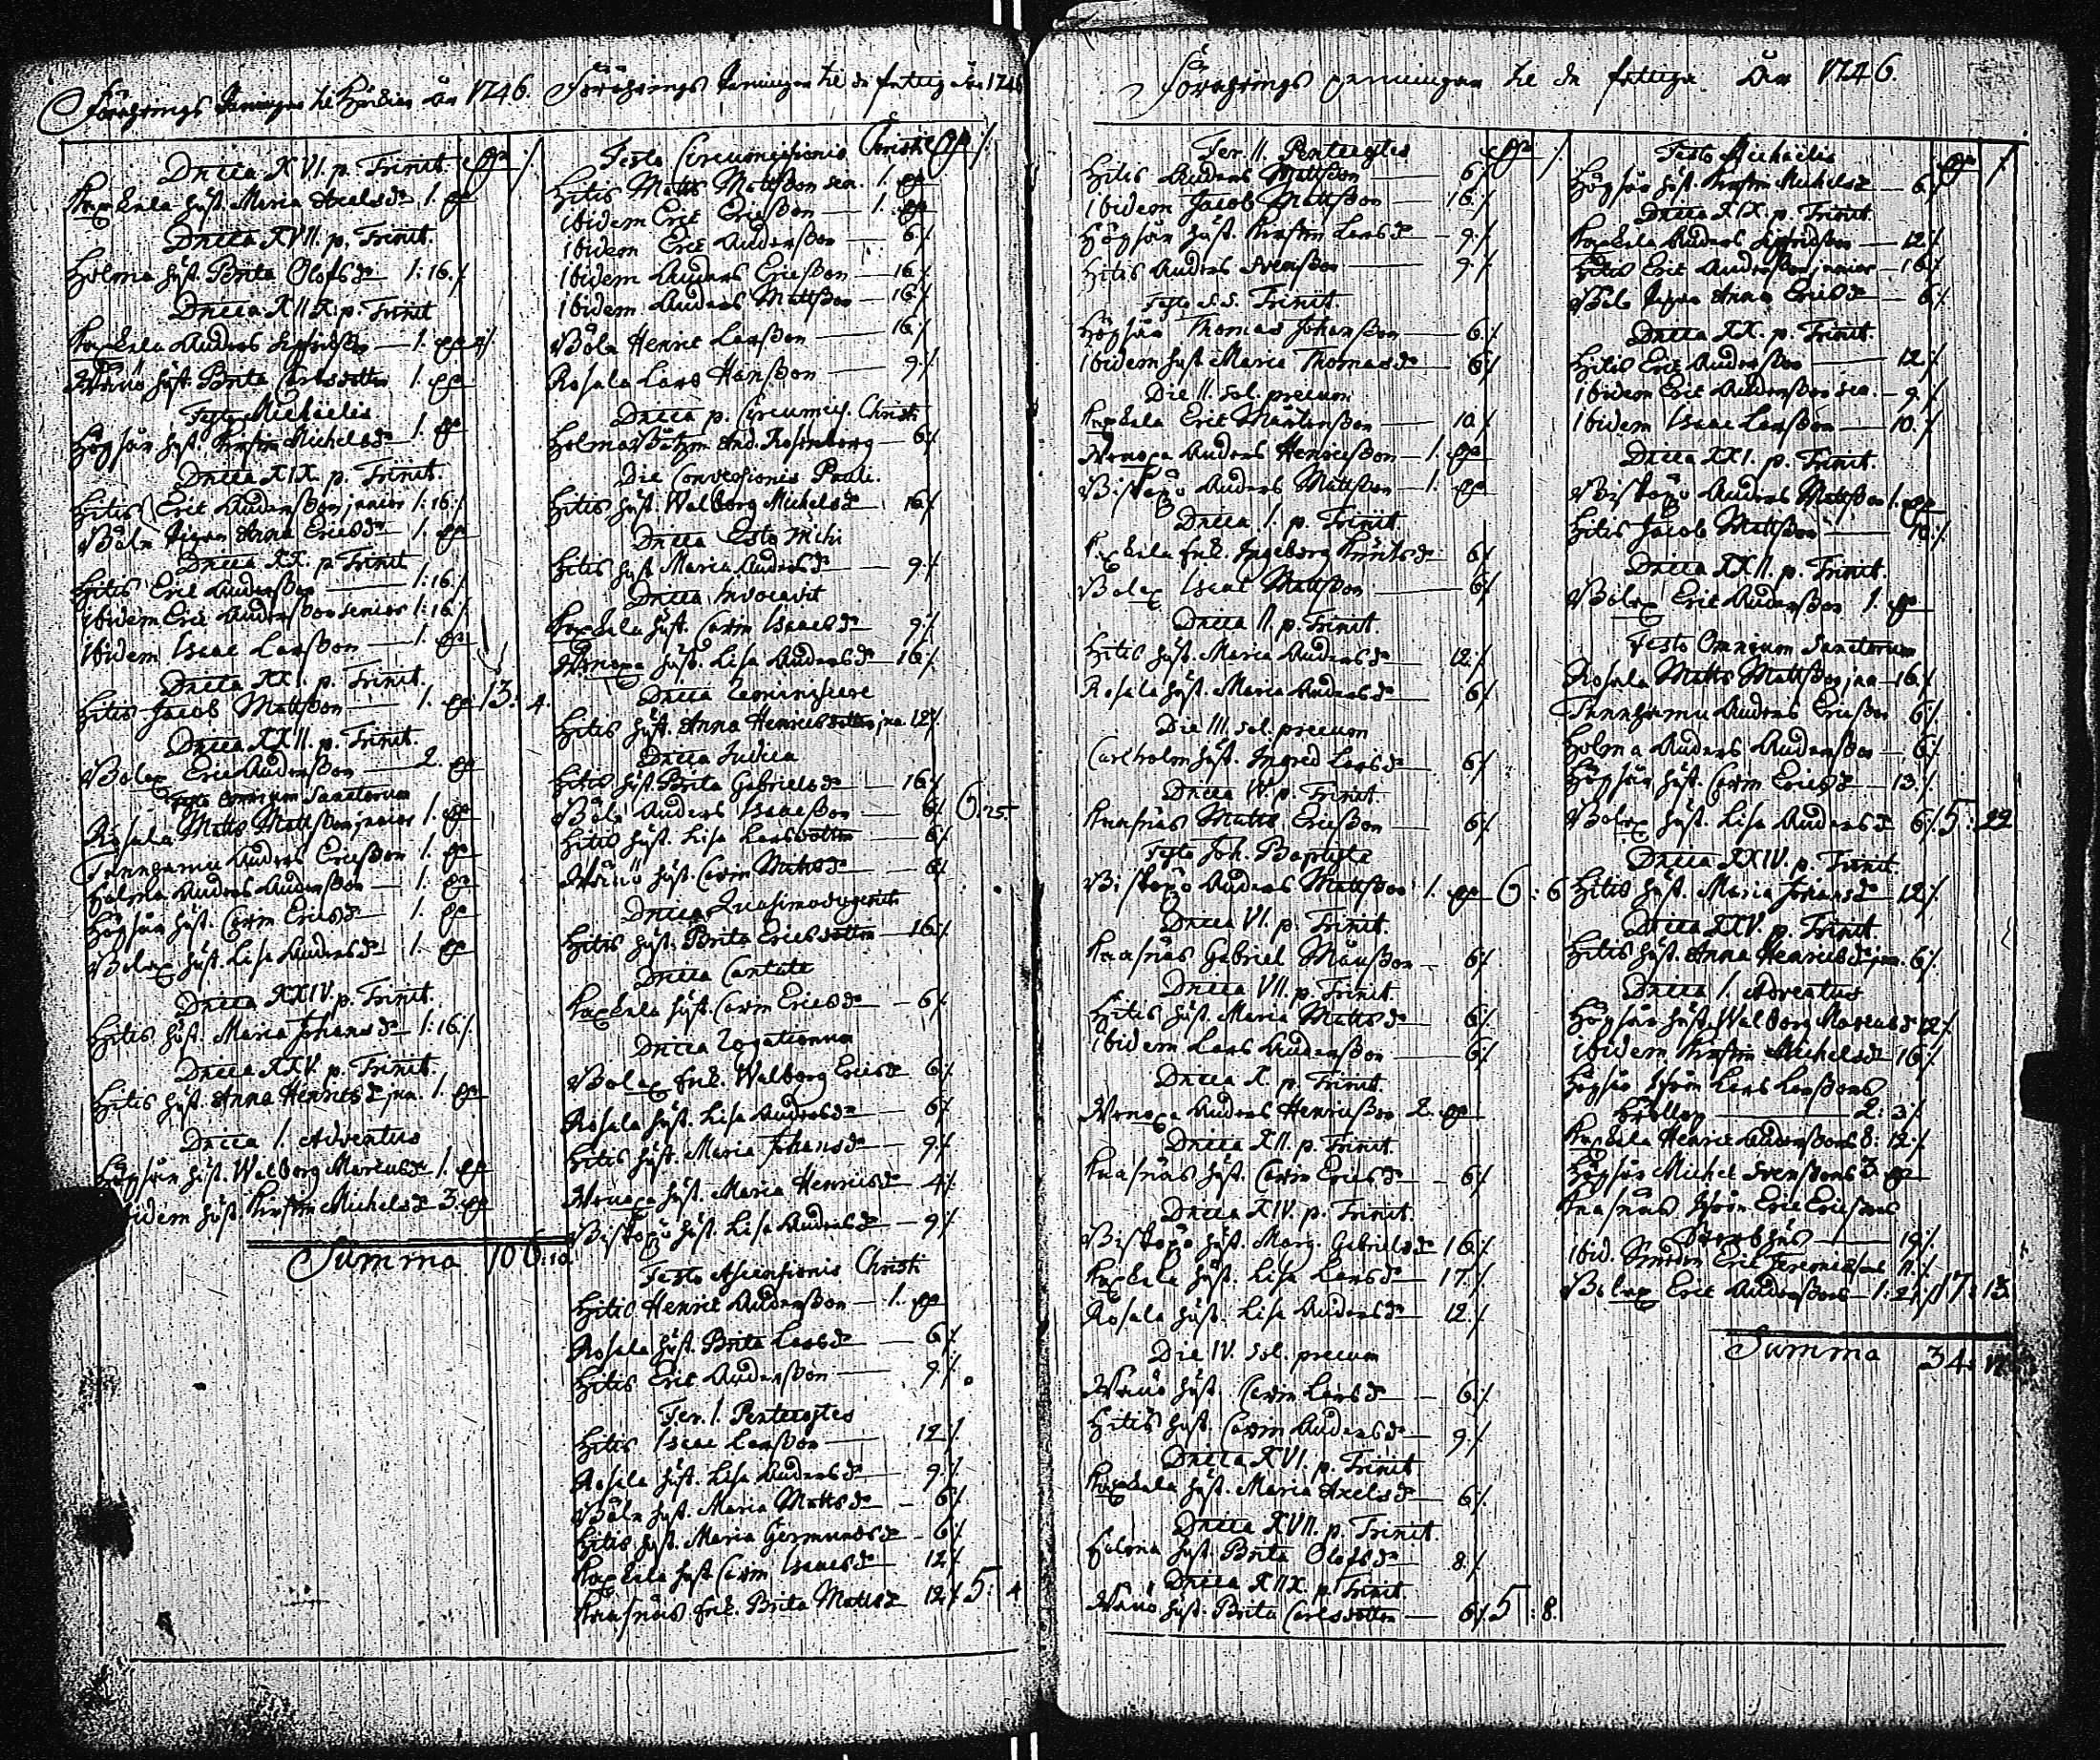 Förährings Penningar til Kyrkian åhr 1746.
Dnica XVI. p. Trinit.
Kaxkala hust. Maria Axelsdr 1.
Dnica XVII. p. Trinit.
Holma hust. Brita Olofsdr 1:16.
Dnica XIIX. p. Trinit
Kaxkala Anders Sigfridsson — 1.
Wänö hust. Brita Carlsdotter 1.
Festo Michaelis
Högsår hust. Kirstin Michelsdr 1.
Dnica XIX. p. Trinit.
Hitis Eric Andersson junior 1:16.
Böle Pigan Anna Ericsdr 1.
Dnica XX. p. Trinit
Hitis Eric Andersson — 1:16.
Ibidem Eric Andersson senior 1:16.
Ibidem Isaac Larsson — 1.
Dnica XXI. p. Trinit.
Hitis Jacob Mattsson — 1. 13: 4.
Dnica XXII. p. Trinit.
Bolax Eric Andersson — 2.
Festo Omnium Sanctorum
Rosala Matts Mattsson junior 1.
Tunnhamn Anders Ericsson 1.
Holma Anders Andersson — 1.
Högsår hust. Carin Ericsdr 1.
Bolax hust. Lisa Andersdr 1.
Dnica XXIV. p. Trinit.
Hitis hust. Maria Johansdr 1:16.
Dnica XXV. p. Trinit.
Hitis hust. Anna Henricsdr jun. 1.
Dnica I. Adventus
Högsår hust. Walborg Marcusdr 1.
idem hust. Kirstin Michelsdr 3.
Summa 106:10
Förährings Penningar til de fattige åhr 1746
Festo Circumcisionis Christi
Hitis Matts Mattsson sen. 1.
Ibidem Eric Ericsson — 1.
Ibidem Eric Andersson — 6
Ibidem Anders Ericsson — 16
Ibidem Anders Mattsson — 16
Böle Henric Larsson — 16
Rosala Lars Hansson — 9
Dnica p. Circumcis. Christi
Holma And. Rosenberg — 6
Die Conversionis Pauli.
Hitis hust. Walborg Michelsdr 16
Dnica Esto Mihi
Hitis hust. Maria Andersdr — 9
Dnica Invocavit
Kaxkala hust. Carin Isacsdr 9
Wänoxa hust. Lisa Andersdr — 16
Dnica Reminiscere
Hitis hust. Anna Henricsdotter jun. 12
Dnica Judica
Hitis hust. Brita Gabrielsdr — 16
Böle Anders Isacsson — 6 6:25
Hitis hust. Lisa Larsdotter — 6
Wänö hust. Carin Mattsdr — 6
Dnica Quasimodogeniti
Hitis hust. Brita Ericsdotter — 16
Dnica Cantate
Kaxkala hust. Carin Ericsdr — 6
Dnica Rogationum
Bolax Enk. Walborg Ericsdr 6
Rosala hust. Lisa Andersdr — 6
Hitis hust. Maria Johansdr — 9
Wänoxa hust. Maria Henricsdr 4
Biskopsö hust. Lisa Andersdr — 9
Festo Ascensionis Christi
Hitis Henric Andersson — 1.
Rosala hust. Brita Larsdr — 6
Hitis Eric Andersson — 9
Fer. I. Pentecostes
Hitis Isaac Larsson — 12
Rosala hust. Lisa Andersdr — 9
Böle hust. Maria Mattsdr — 6
Hitis hust. Maria Germundsdr — 6
Kaxkala hust. Carin Isacsdr 12
Kasnäs Enk. Brita Mattsdr 12 5: 4
Förährings penningar til de fattige åhr 1746.
Fer. II. Pentecostes
Hitis Anders Mattsson — 6
Ibidem Jacob Mattsson — 16
Högsår hust. Kirstin Larsdr — 9
Hitis Anders Svensson — 9
Festo S.S. Trinit.
Högsår Thomas Johansson — 6
Ibidem hust. Maria Thomasdr — 6
Die II. Sol. precum.
Kaxkala Eric Mårtensson — 10
Wänoxa Anders Henricsson — 1.
Biskopsö Anders Mattsson — 1.
Dnica I. p. Trinit.
Kaxkala Enk. Ingeborg 6
Bolax Isaac Mattsson — 6
Dnica II. p. Trinit.
Hitis hust. Maria Andersdr — 12
Rosala hust. Maria Andersdr — 6
Die III. Sol. precum
Carlholm hust. Ingred Larsdr 6
Dnica IV. p. Trinit.
Kasnäs Matts Ericsson — 6
Festo Joh. Baptistæ
Biskopsö Anders Mattsson 1. 6:6
Dnica VI. p. Trinit.
Kasnäs Gabriel Månsson — 6
Dnica VII. p. Trinit.
Hitis hust. Maria Mattsdr — 6
Ibidem Lars Andersson — 6
Dnica X. p. Trinit.
Wänoxa Anders Henricsson 2.
Dnica XII. p. Trinit.
Kasnäs hust. Carin Ericsdr — 6
Dnica XIV. p. Trinit.
Biskopsö hust. Marg. Gabrielsdr 16
Kaxkala hust. Lisa Larsdr — 17
Rosala hust. Lisa Andersdr — 12
Die IV. Sol. precum
Wänö hust. Carin Larsdr — 6
Hitis hust. Carin Andersdr — 9
Dnica XVI. p. Trinit
Kaxkala hust. Maria Axelsdr — 6
Dnica XVII. p. Trinit.
Holma hust. Brita Olofsdr 8
Dnica XIIX. p. Trinit.
Wänö hust. Brita Carlsdotter — 6 5:8
Festo Michaelis
Högsår hust. Kirstin Michelsdr — 6
Dnica XIX. p. Trinit.
Kaxkala Anders Sigfridsson — 12
Hitis Eric Andersson junior — 16
Böle Pigan Anna Ericsdr — 6
Dnica XX. p. Trinit.
Hitis Eric Andersson — 12
Ibidem Eric Andersson sen. — 9
Ibidem Isaac Larsson — 10
Dnica XXI. p. Trinit.
Biskopsö Anders Mattsson 1.
Hitis Jacob Mattsson — 10
Dnica XXII. p. Trinit.
Bolax Eric Andersson 1.
Festo Omnium Sanctorum
Rosala Matts Mattsson jun — 16
Tunnhamn Anders Ericsson 6
Holma Anders Andersson — 6
Högsår hust. Carin Ericsdr — 13
Bolax hust. Lisa Andersdr 6 5:22
Dnica XXIV. p. Trinit.
Hitis hust. Maria Johansdr — 12
Dnica XXV. p. Trinit
Hitis hust. Anna Henricsdr jun. 6
Dnica I. Adventus
Högsår hust. Walborg Marcusdr 12
Ibidem Kirstin Michelsdr — 16
Högsår Lars Larssons
— 2: 3
Kaxkala Henric Anderssons 8: 12
Högsår Michel Svenssons 3.
Kasnäs Eric Ericssons
— 19
Ibid. Eric Jeremiæsons 11
Bolax Eric Anderssons — 1:21 17:13
Summa 34: